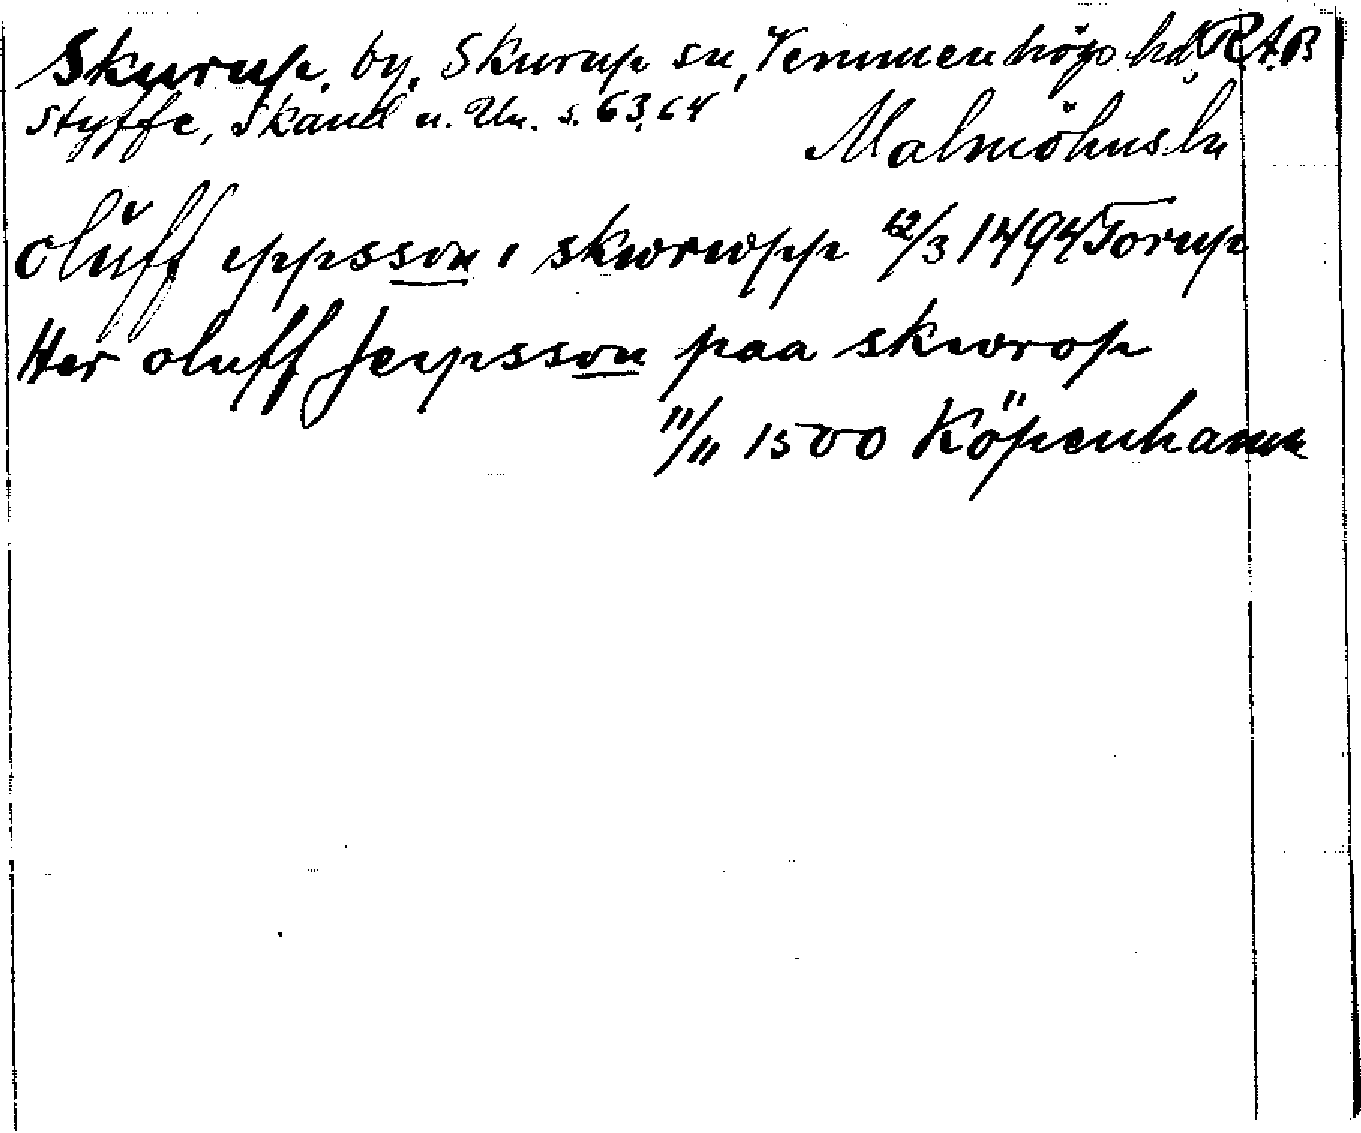 Skurup, by, Skurup sn, Vemmenhögs hd, Rt.B
Styffe, Skand u. Un. s. 63, 64
Malmöhus ln
olŭff eppsson i skwrwpp 12/3 1494 Torup
Her oluff Jeipsson paa skwrop
11/11 1500 Köpenhamn